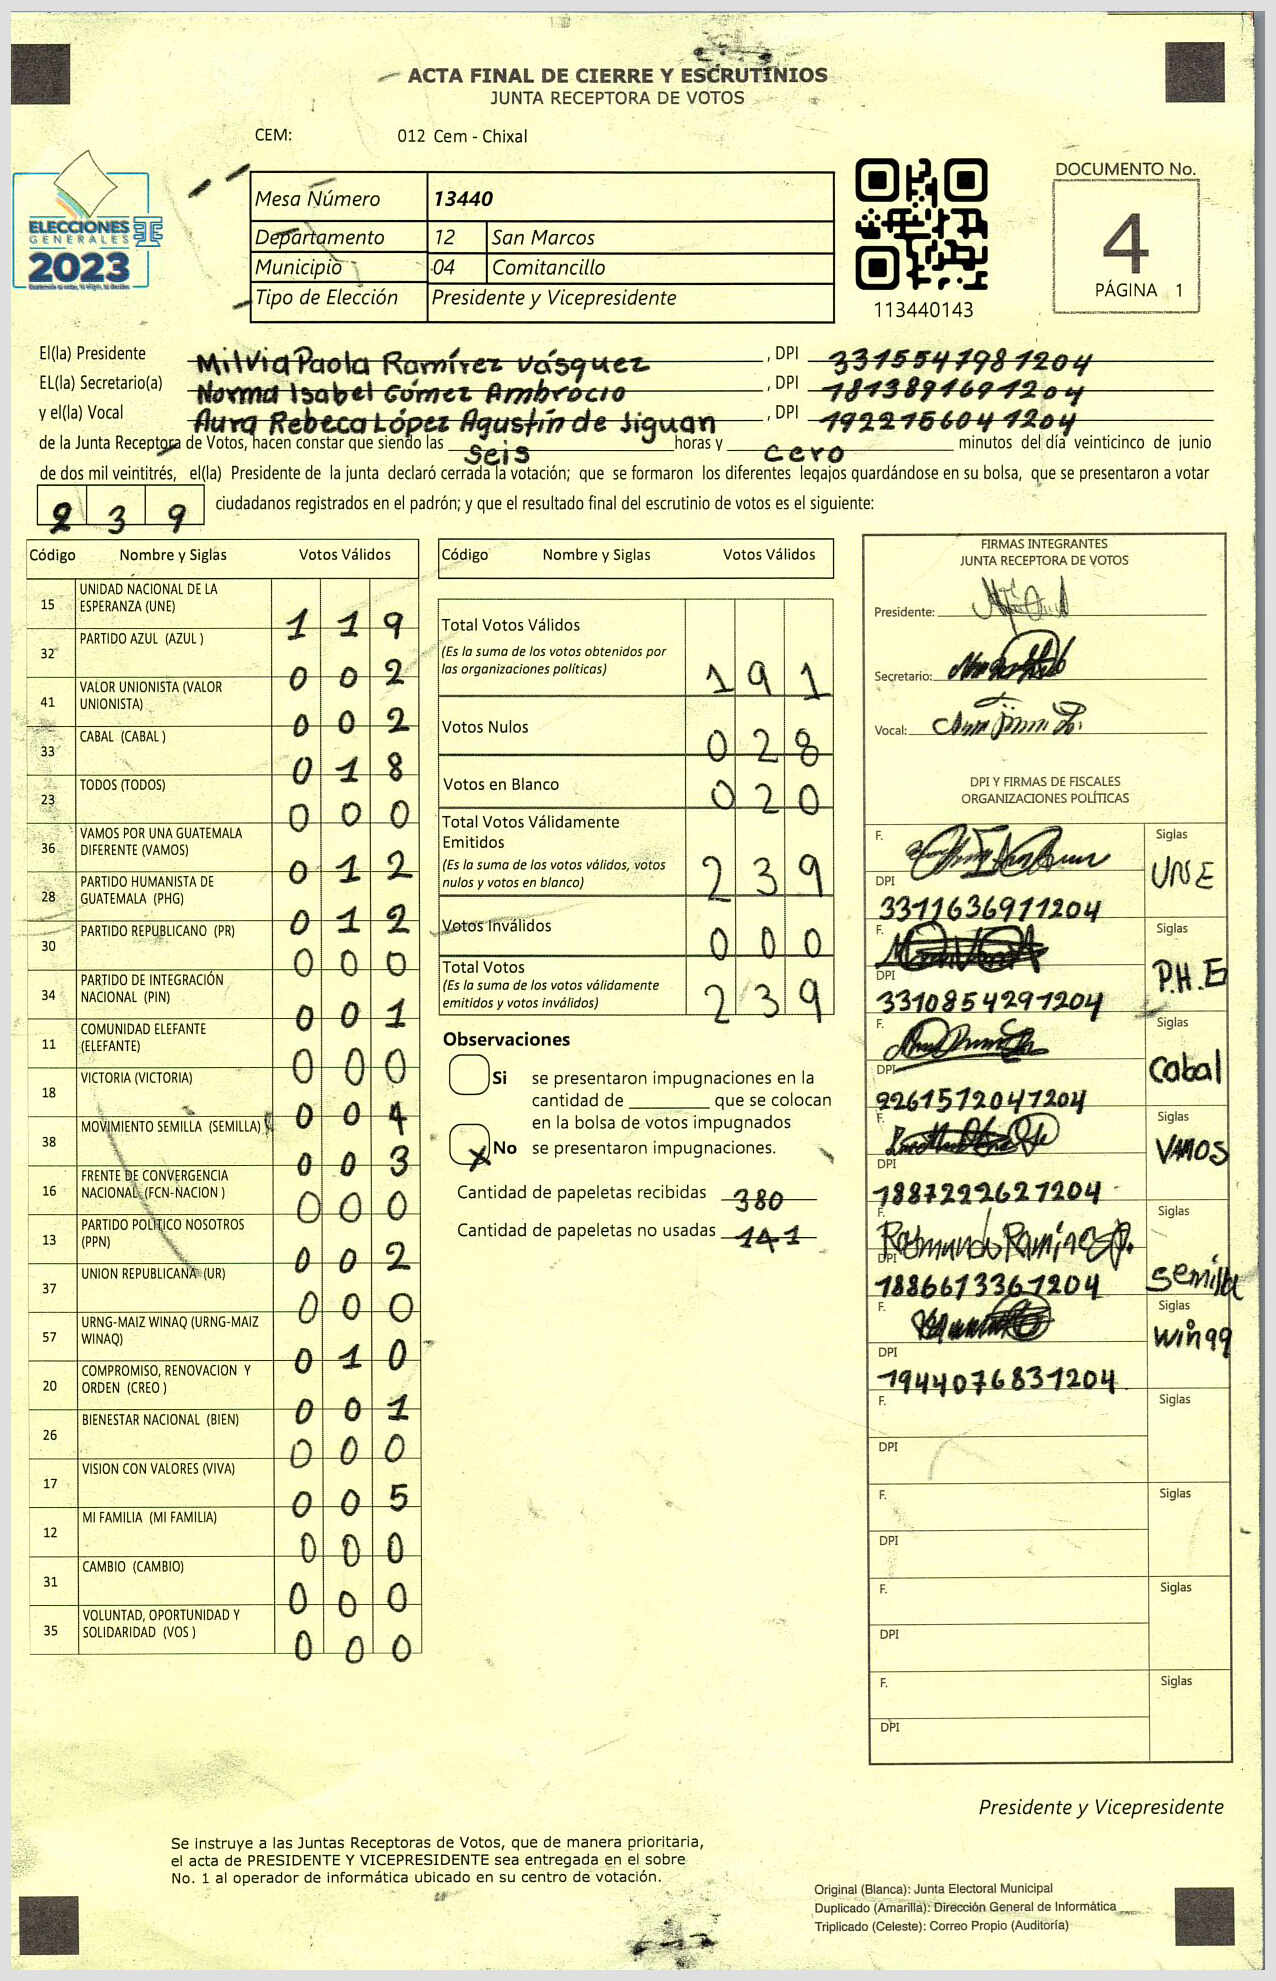 ACTA FINAL DE CIERRE Y ESCRUTINIOS
JUNTA RECEPTORA DE VOTOS
CEM: 012 Cem - Chixal
ELECCIONES
GENERALES
2023
Mesa Número 13440
Departamento 12 San Marcos
Municipio 04 Comitancillo
Tipo de Elección Presidente y Vicepresidente
113440143
DOCUMENTO No.
4
PÁGINA 1
El(la) Presidente Milvia Paola Ramírez Vásquez , DPI 3315547981204
EL(la) Secretario(a) Norma Isabel Gómez Ambrocio , DPI 1813891691204
y el(la) Vocal Aura Rebeca López Agustín de Jiguan , DPI 1922156041204
de la Junta Receptora de Votos, hacen constar que siendo las seis horas y cero minutos del día veinticinco de junio
de dos mil veintitrés, el(la) Presidente de la junta declaró cerrada la votación; que se formaron los diferentes legajos quardándose en su bolsa, que se presentaron a votar
239 ciudadanos registrados en el padrón; y que el resultado final del escrutinio de votos es el siguiente:
Código Nombre y Siglas Votos Válidos
15 UNIDAD NACIONAL DE LA ESPERANZA (UNE) 119
32 PARTIDO AZUL (AZUL ) 002
41 VALOR UNIONISTA (VALOR UNIONISTA) 002
33 CABAL (CABAL ) 018
23 TODOS (TODOS) 000
36 VAMOS POR UNA GUATEMALA DIFERENTE (VAMOS) 012
28 PARTIDO HUMANISTA DE GUATEMALA (PHG) 012
30 PARTIDO REPUBLICANO (PR) 000
34 PARTIDO DE INTEGRACIÓN NACIONAL (PIN) 001
11 COMUNIDAD ELEFANTE (ELEFANTE) 000
18 VICTORIA (VICTORIA) 004
38 MOVIMIENTO SEMILLA (SEMILLA) 003
16 FRENTE DE CONVERGENCIA NACIONAL (FCN-NACION ) 000
13 PARTIDO POLITICO NOSOTROS (PPN) 002
37 UNION REPUBLICANA (UR) 000
57 URNG-MAIZ WINAQ (URNG-MAIZ WINAQ) 010
20 COMPROMISO, RENOVACION Y ORDEN (CREO ) 001
26 BIENESTAR NACIONAL (BIEN) 000
17 VISION CON VALORES (VIVA) 005
12 MI FAMILIA (MI FAMILIA) 000
31 CAMBIO (CAMBIO) 000
35 VOLUNTAD, OPORTUNIDAD Y SOLIDARIDAD (VOS ) 000
Código Nombre y Siglas Votos Válidos
Total Votos Válidos 191
(Es la suma de los votos obtenidos por
las organizaciones políticas)
Votos Nulos 028
Votos en Blanco 020
Total Votos Válidamente
Emitidos 239
(Es la suma de los votos válidos, votos
nulos y votos en blanco)
Votos Inválidos 000
Total Votos 239
(Es la suma de los votos válidamente
emitidos y votos inválidos)
Observaciones
Si se presentaron impugnaciones en la
cantidad de ________ que se colocan
en la bolsa de votos impugnados
X No se presentaron impugnaciones.
Cantidad de papeletas recibidas 380
Cantidad de papeletas no usadas 141
FIRMAS INTEGRANTES
JUNTA RECEPTORA DE VOTOS
Presidente:
Secretario:
Vocal:
DPI Y FIRMAS DE FISCALES
ORGANIZACIONES POLÍTICAS
F. Siglas UNE
DPI 3311636911204
F. Siglas P.H.E
DPI 3310854291204
F. Siglas Cabal
DPI 2261512041204
F. Siglas VAMOS
DPI 1887222621204
F. Raimundo Ramírez Siglas semilla
DPI 1886613361204
F. Siglas winaq
DPI 1944076831204
F. Siglas
DPI
F. Siglas
DPI
F. Siglas
DPI
F. Siglas
DPI
Presidente y Vicepresidente
Se instruye a las Juntas Receptoras de Votos, que de manera prioritaria,
el acta de PRESIDENTE Y VICEPRESIDENTE sea entregada en el sobre
No. 1 al operador de informática ubicado en su centro de votación.
Original (Blanca): Junta Electoral Municipal
Duplicado (Amarilla): Dirección General de Informática
Triplicado (Celeste): Correo Propio (Auditoría)